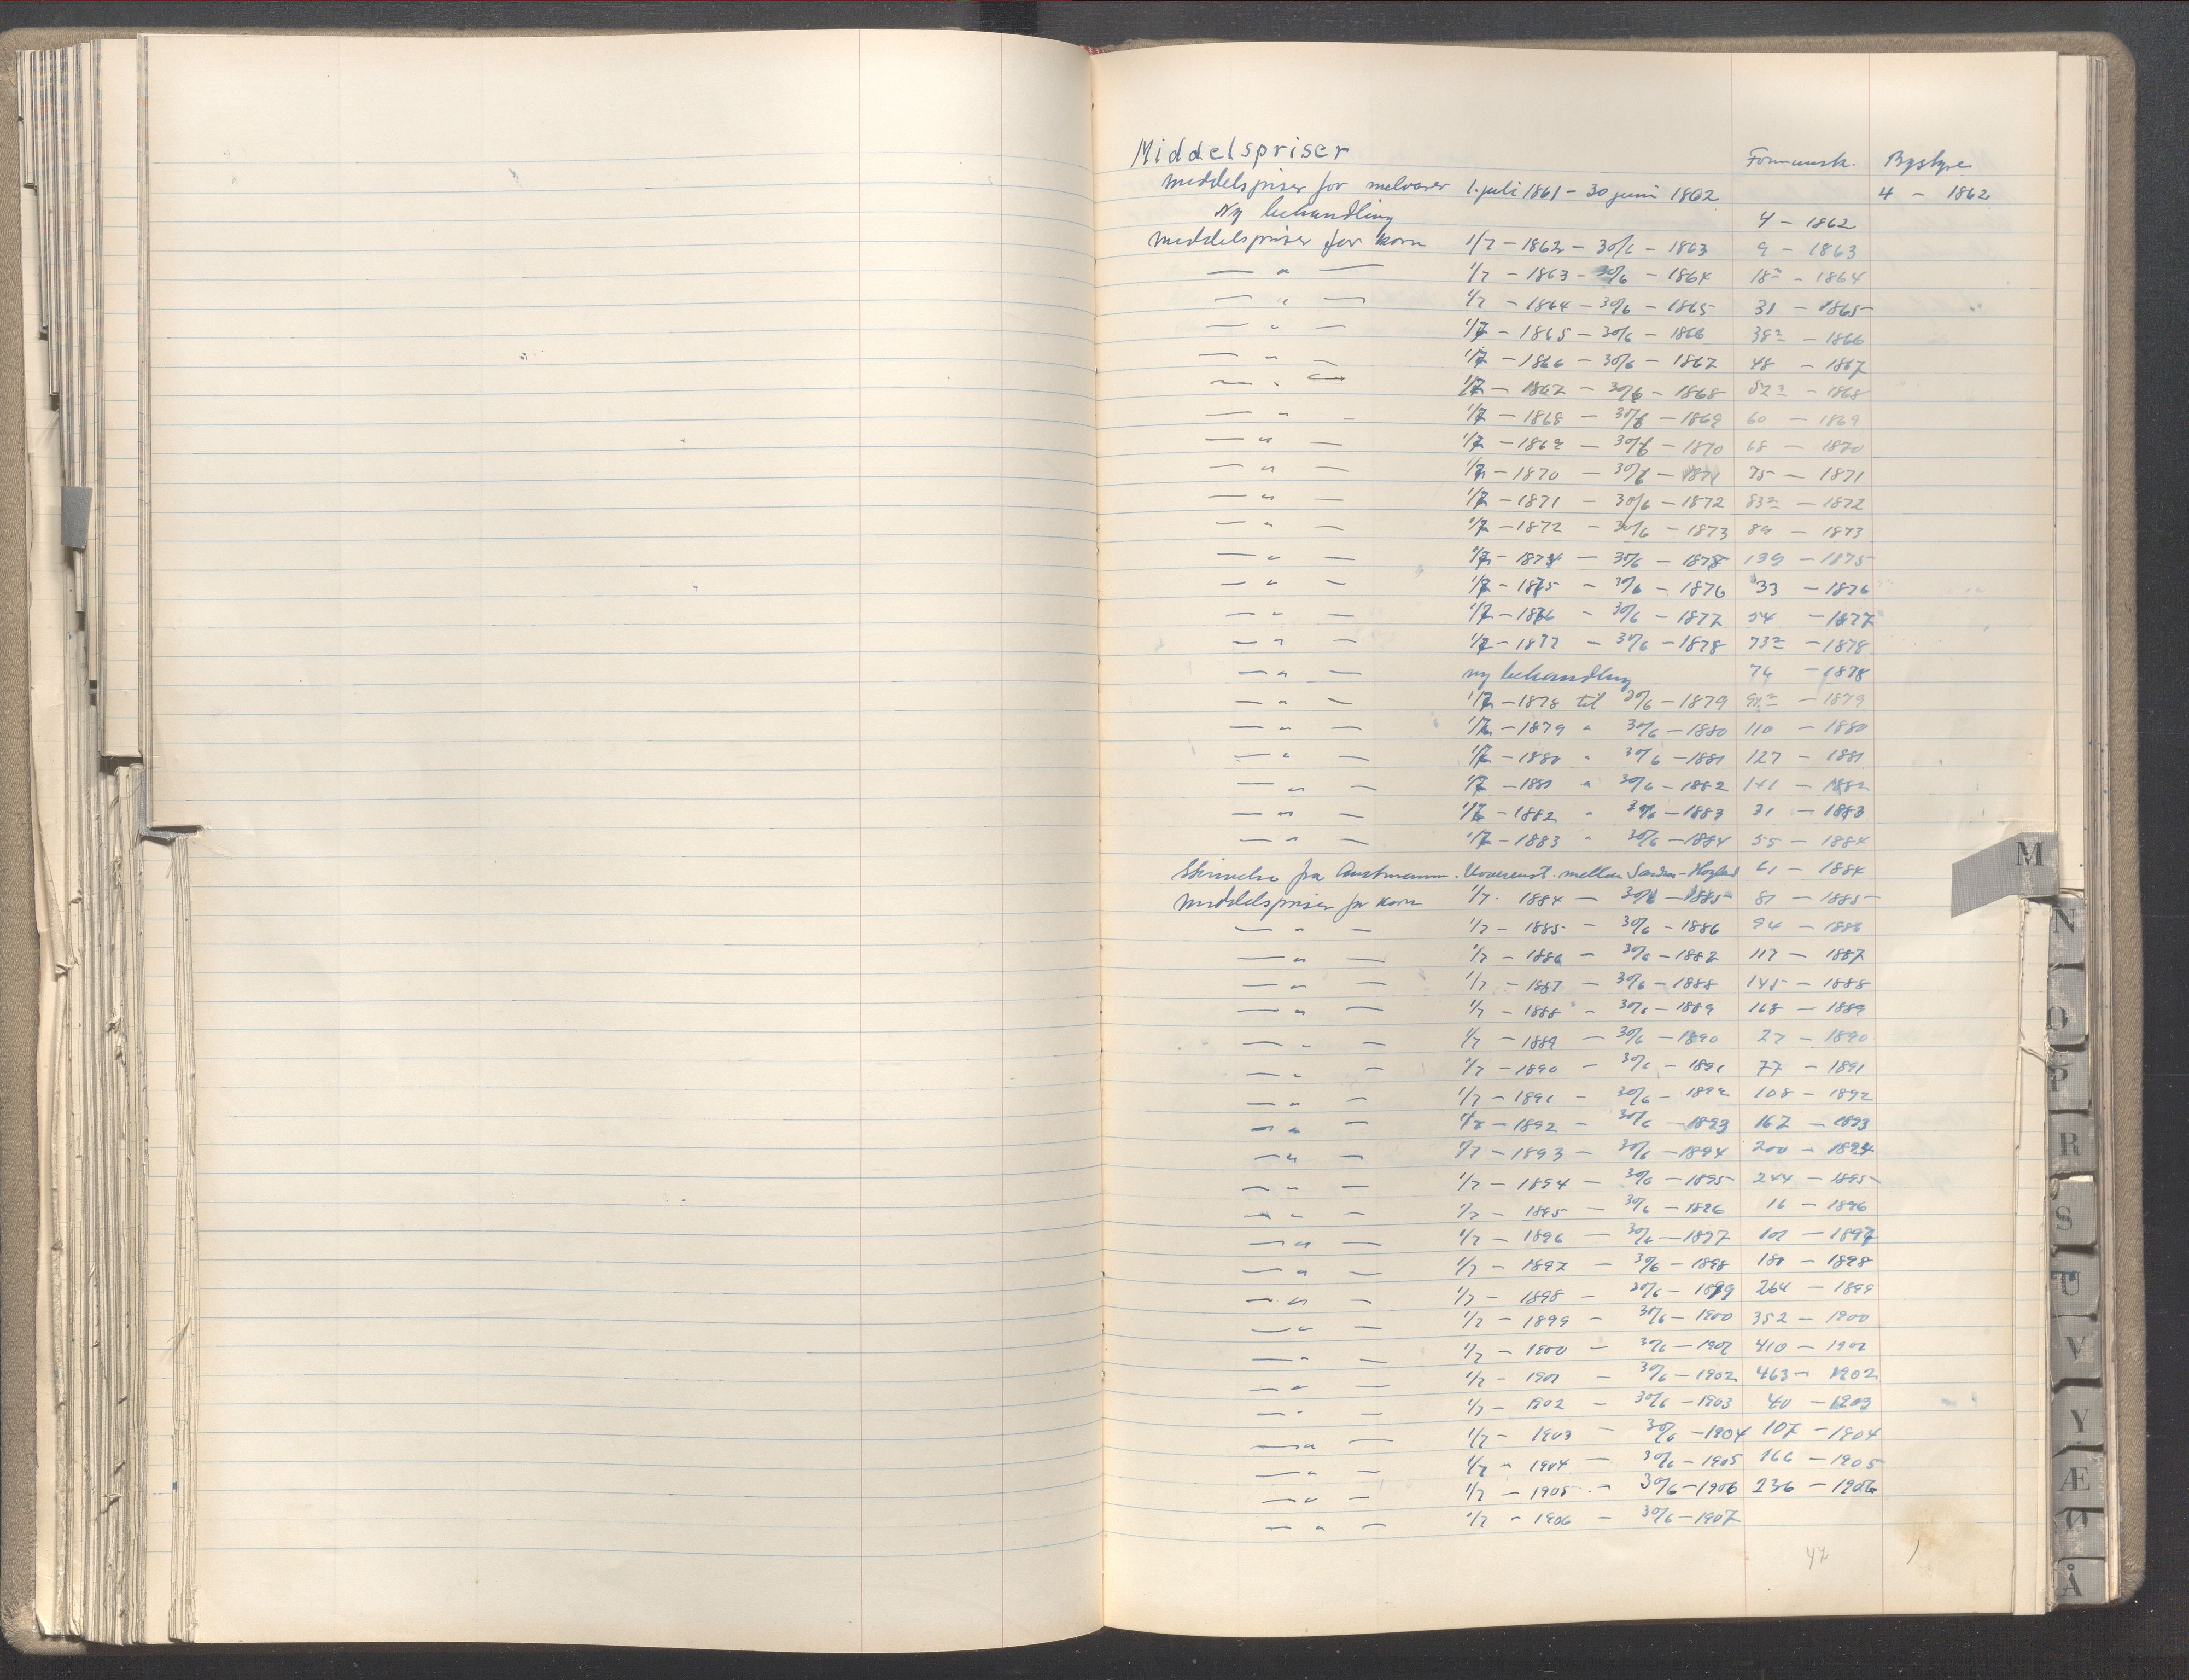 Middelspriser Formannsk. Bystyre
middelspriser for melvarer 1. juli 1861 - 30 juni 1862 4 - 1862
Ny behandling 4 - 1862
middelspriser for korn 1/7 - 1862 - 30/6 - 1863 9 - 1863
— " — 1/7 - 1863 - 30/6 - 1864 18 - 1864
— " — 1/7 - 1864 - 30/6 - 1865 31 - 1865
— " — 1/7 - 1865 - 30/6 - 1866 38 - 1866
— " — 1/7 - 1866 - 30/6 - 1867 48 - 1867
— " — 1/7 - 1867 - 30/6 - 1868 - 1868
— " — 1/7 - 1868 - 30/6 - 1869 60 - 1869
— " — 1/7 - 1869 - 30/6 - 1870 68 - 1870
— " — 1/7 - 1870 - 30/6 - 1871 75 - 1871
— " — 1/7 - 1871 - 30/6 - 1872 83 - 1872
— " — 1/7 - 1872 - 30/6 - 1873 89 - 1873
— " — 1/7 - 1874 - 30/6 - 1875 139 - 1875
— " — 1/7 - 1875 - 30/6 - 1876 33 - 1876
— " — 1/7 - 1876 - 30/6 - 1877 54 - 1877
— " — 1/7 - 1877 - 30/6 - 1878 73 - 1878
— " — ny behandling 74 - 1878
— " — 1/7 - 1878 til 30/6 - 1879 - 1879
— " — 1/7 - 1879 " 30/6 - 1880 110 - 1880
— " — 1/7 - 1880 " 30/6 - 1881 127 - 1881
— " — 1/7 - 1881 " 30/6 - 1882 141 - 1882
— " — 1/7 - 1882 " 30/6 - 1883 31 - 1883
— " — 1/7 - 1883 " 30/6 - 1884 55 - 1884
Skrivelse fra Amtmann. Uoverenst. mellom 61 - 1884
middelspriser for korn 1/7 - 1884 - 30/6 - 1885 81 - 1885
— " — 1/7 - 1885 - 30/6 - 1886 94 - 1886
— " — 1/7 - 1886 - 30/6 - 1887 117 - 1887
— " — 1/7 - 1887 - 30/6 - 1888 145 - 1888
— " — 1/7 - 1888 - 30/6 - 1889 168 - 1889
— " — 1/7 - 1889 - 30/6 - 1890 27 - 1890
— " — 1/7 - 1890 - 30/6 - 1891 77 - 1891
— " — 1/7 - 1891 - 30/6 - 1892 108 - 1892
— " — 1/7 - 1892 - 30/6 - 1893 167 - 1893
— " — 1/7 - 1893 - 30/6 - 1894 200 - 1894
— " — 1/7 - 1894 - 30/6 - 1895 244 - 1895
— " — 1/7 - 1895 - 30/6 - 1896 16 - 1896
— " — 1/7 - 1896 - 30/6 - 1897 101 - 1897
— " — 1/7 - 1897 - 30/6 - 1898 180 - 1898
— " — 1/7 - 1898 - 30/6 - 1899 264 - 1899
— " — 1/7 - 1899 - 30/6 - 1900 352 - 1900
— " — 1/7 - 1900 - 30/6 - 1901 410 - 1901
— " — 1/7 - 1901 - 30/6 - 1902 463 - 1902
— " — 1/7 - 1902 - 30/6 - 1903 40 - 1903
— " — 1/7 - 1903 - 30/6 - 1904 107 - 1904
— " — 1/7 - 1904 - 30/6 - 1905 166 - 1905
— " — 1/7 - 1905 - 30/6 - 1906 236 - 1906
— " — 1/7 - 1906 - 30/6 - 1907
47
M
N
O
P
R
S
T
U
V
Y
Æ
Ø
Å